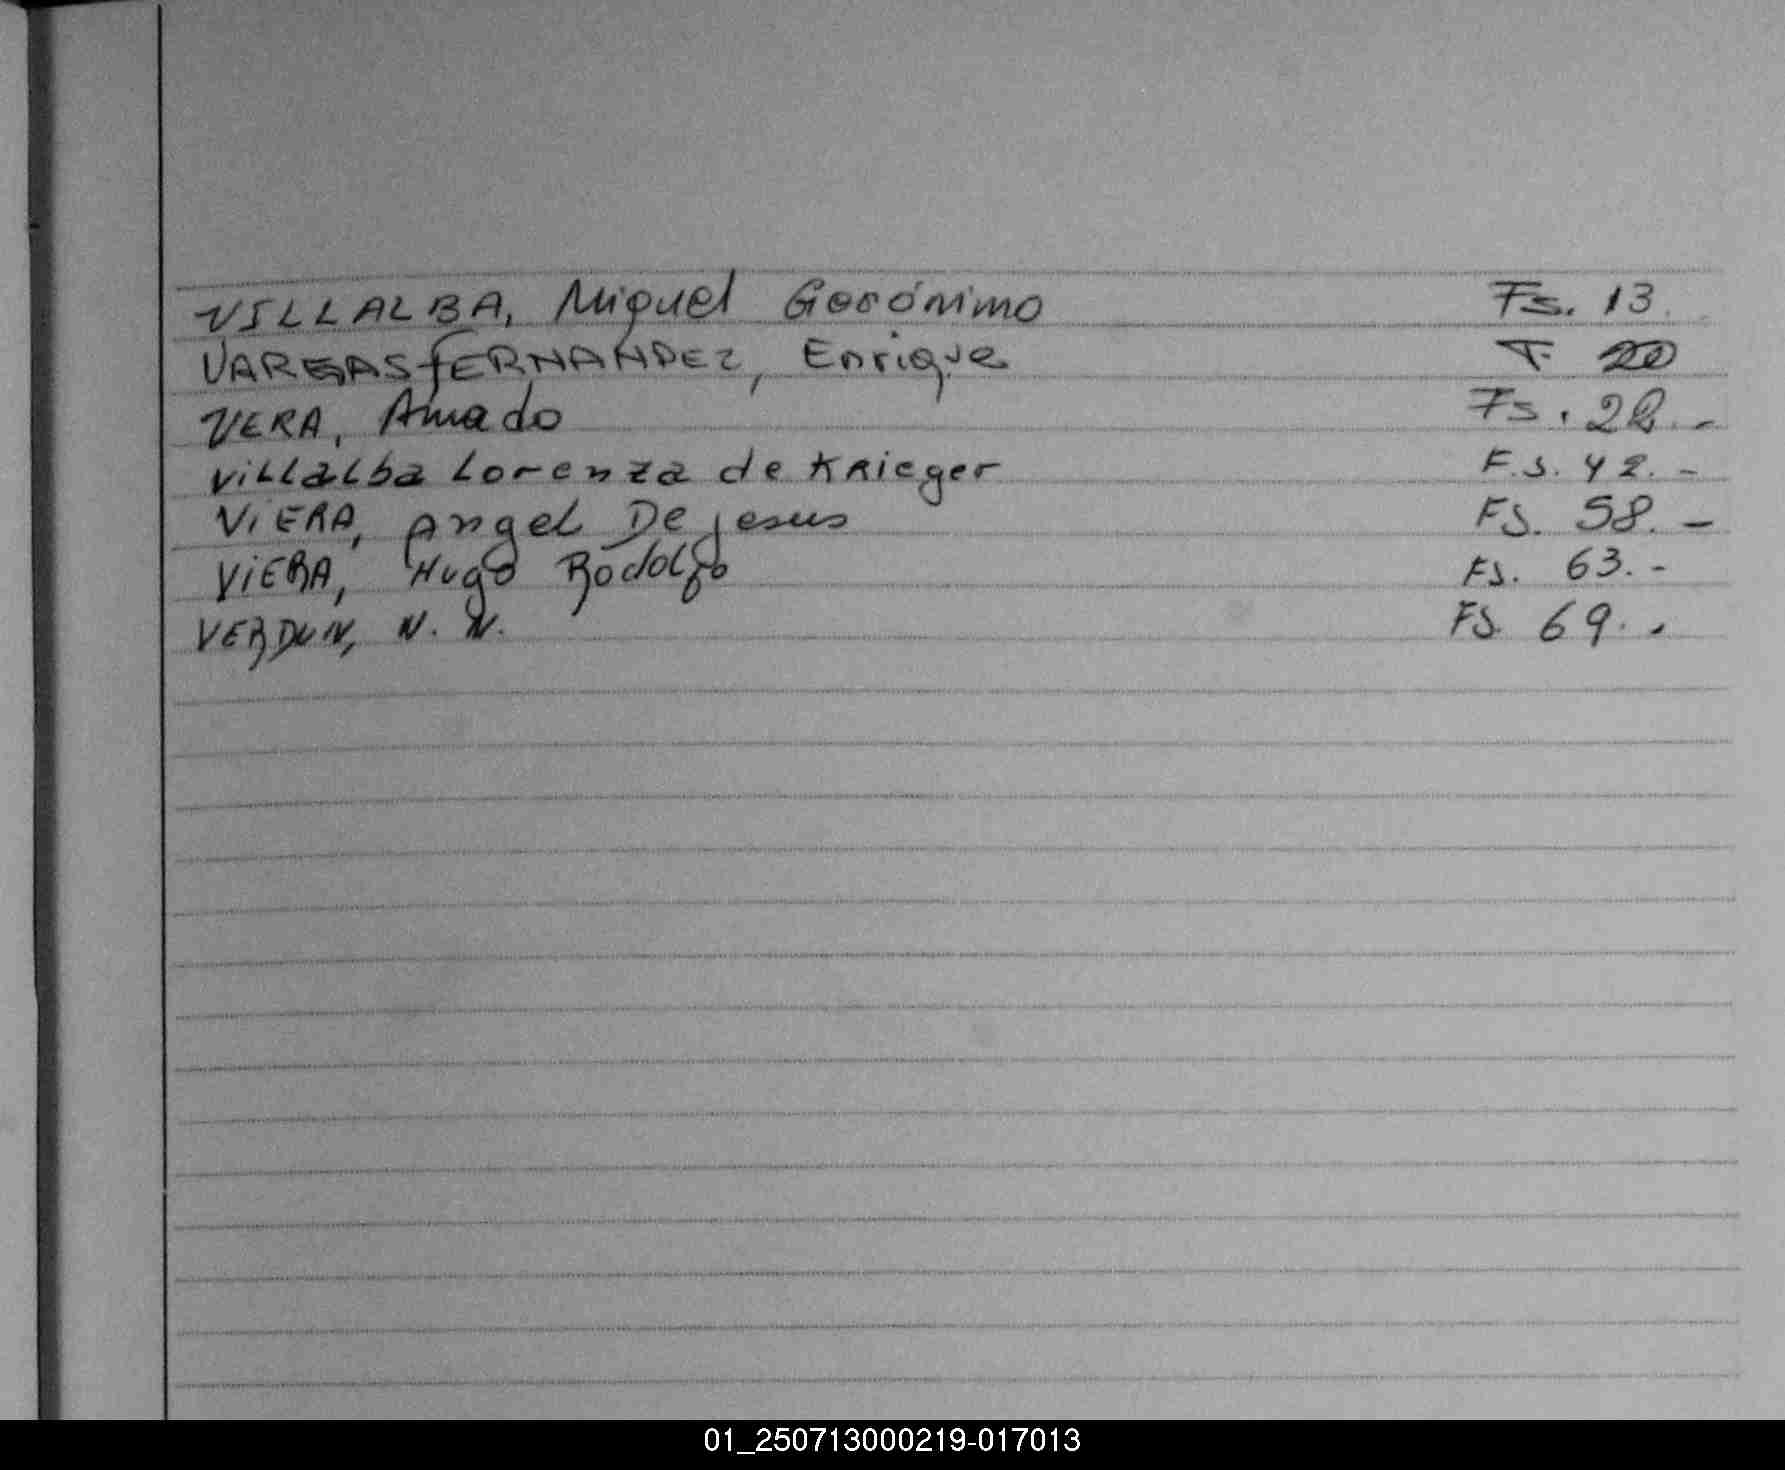 VILLALBA, Miguel Gerónimo Fs. 13.
VARGAS FERNANDEZ, Enrique F. 20
VERA, Amado Fs. 22.-
Villalba Lorenza de Krieger F.s. 42.-
VIERA, Angel De jesus FS. 58.-
VIERA, Hugo Rodolfo FS. 63.-
VERDUN, N. N. FS. 69.-
01_250713000219-017013